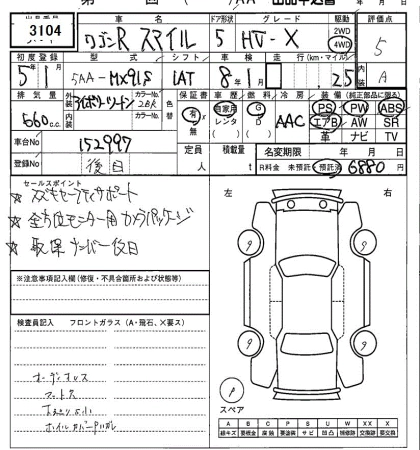 3104
車名 ドア形状 グレード 駆動 評価点
ワゴンR スマイル 5 HV-X 2WD 4WD 5
初度登録 型式 シフト 車検 走行(km・マイル) 内装
5年1月 5AA-MX91S IAT 8年1月 2.5 A
排気量 外装 カラーNo. 色替 保証書 車歴 燃料 冷房 装備(純正部品に限る)
660c.c. 2BR 有・無 自家用 レンタ G D AAC PS PW ABS
内装 カラーNo. エアB AW SR
革 ナビ TV
車台No 152997 定員 人 積載量 t 名変期限 年 月 日
登録No 後日 R料金 未預託・預託済 6880 円
セールスポイント
☆ スズキセーフティサポート
☆ 全方位モニター用カメラパッケージ
☆ 取保ナンバー後日
左 右
※注意事項記入欄(修復・不具合箇所および状態等)
検査員記入 フロントガラス(A・飛石、×要ス)
オーディオレス
マット欠
ホイルカバー
9 9
9 9
P
スペア
A B C P S U W XX X
線キズ 要板金 腐蝕 要塗装 サビ 凹凸 補修跡 交換跡 要交換